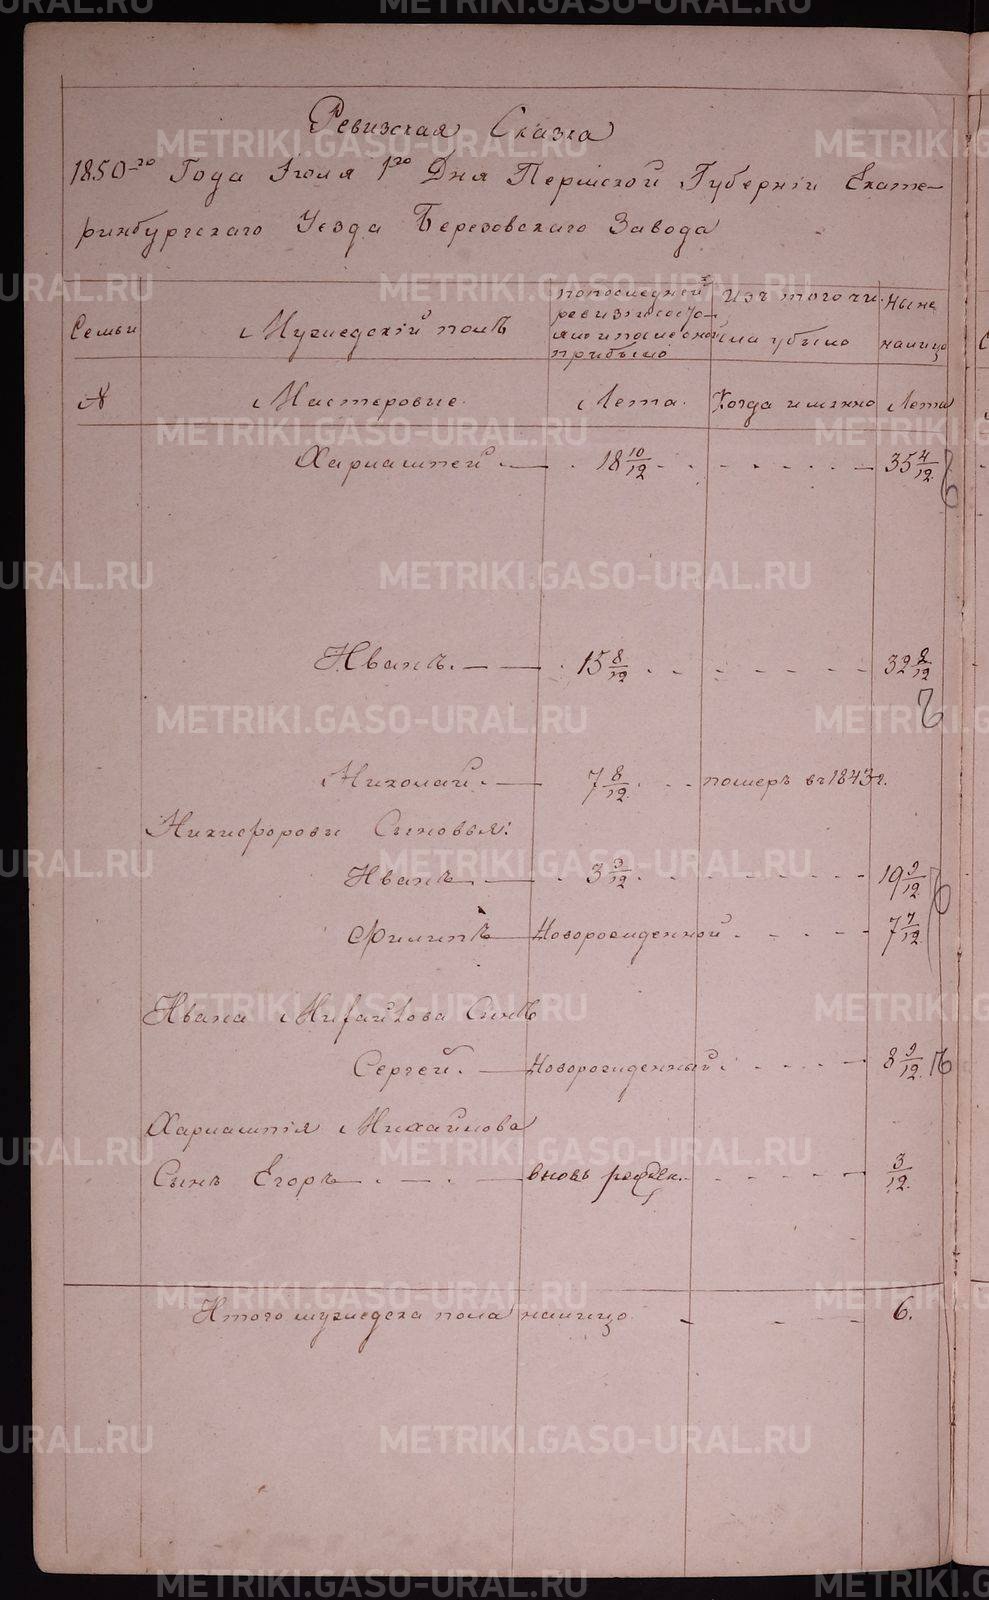 Ревизская Сказка
1850-го Года Июля 1го Дня Пермской Губернiи Екате-
ринбургскаго Уезда Березовскаго Завода
Семьи
Мужедскiй полъ
попоследней
ревизiисосто
яло и после оной
прибыло
Изъ того чи
сла убыло
Ныне
налицо
№
Мастеровые.
Лета.
Когда имянно
Лета
Харлампей. — 18 10/12 35 4/12
Иванъ. — 15 8/12 32 8/12
Николай. — 7 8/12 померъ въ 1843 г.
Никифоровы Сыновья:
Иванъ — 3 3/12 19 9/12
Филипъ — Новорожденной 7 7/12
Ивана Михайлова Сынъ
Сергей. — Новорожденный. 8 9/12
Харлампiя Михайлова
Сынъ Егоръ — вновь рожден. 3/12
Итого мужедска пола налицо 6.
METRIKI.GASO-URAL.RU